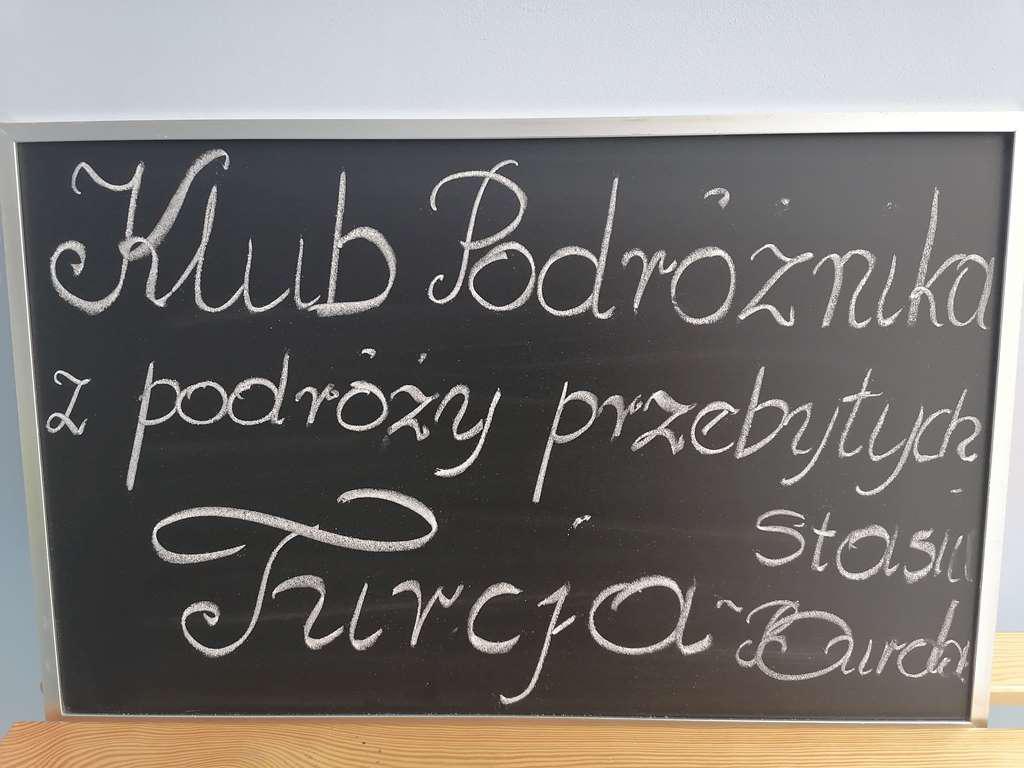 Klub Podróżnika
z podróży przebytych
Turcja
Burda